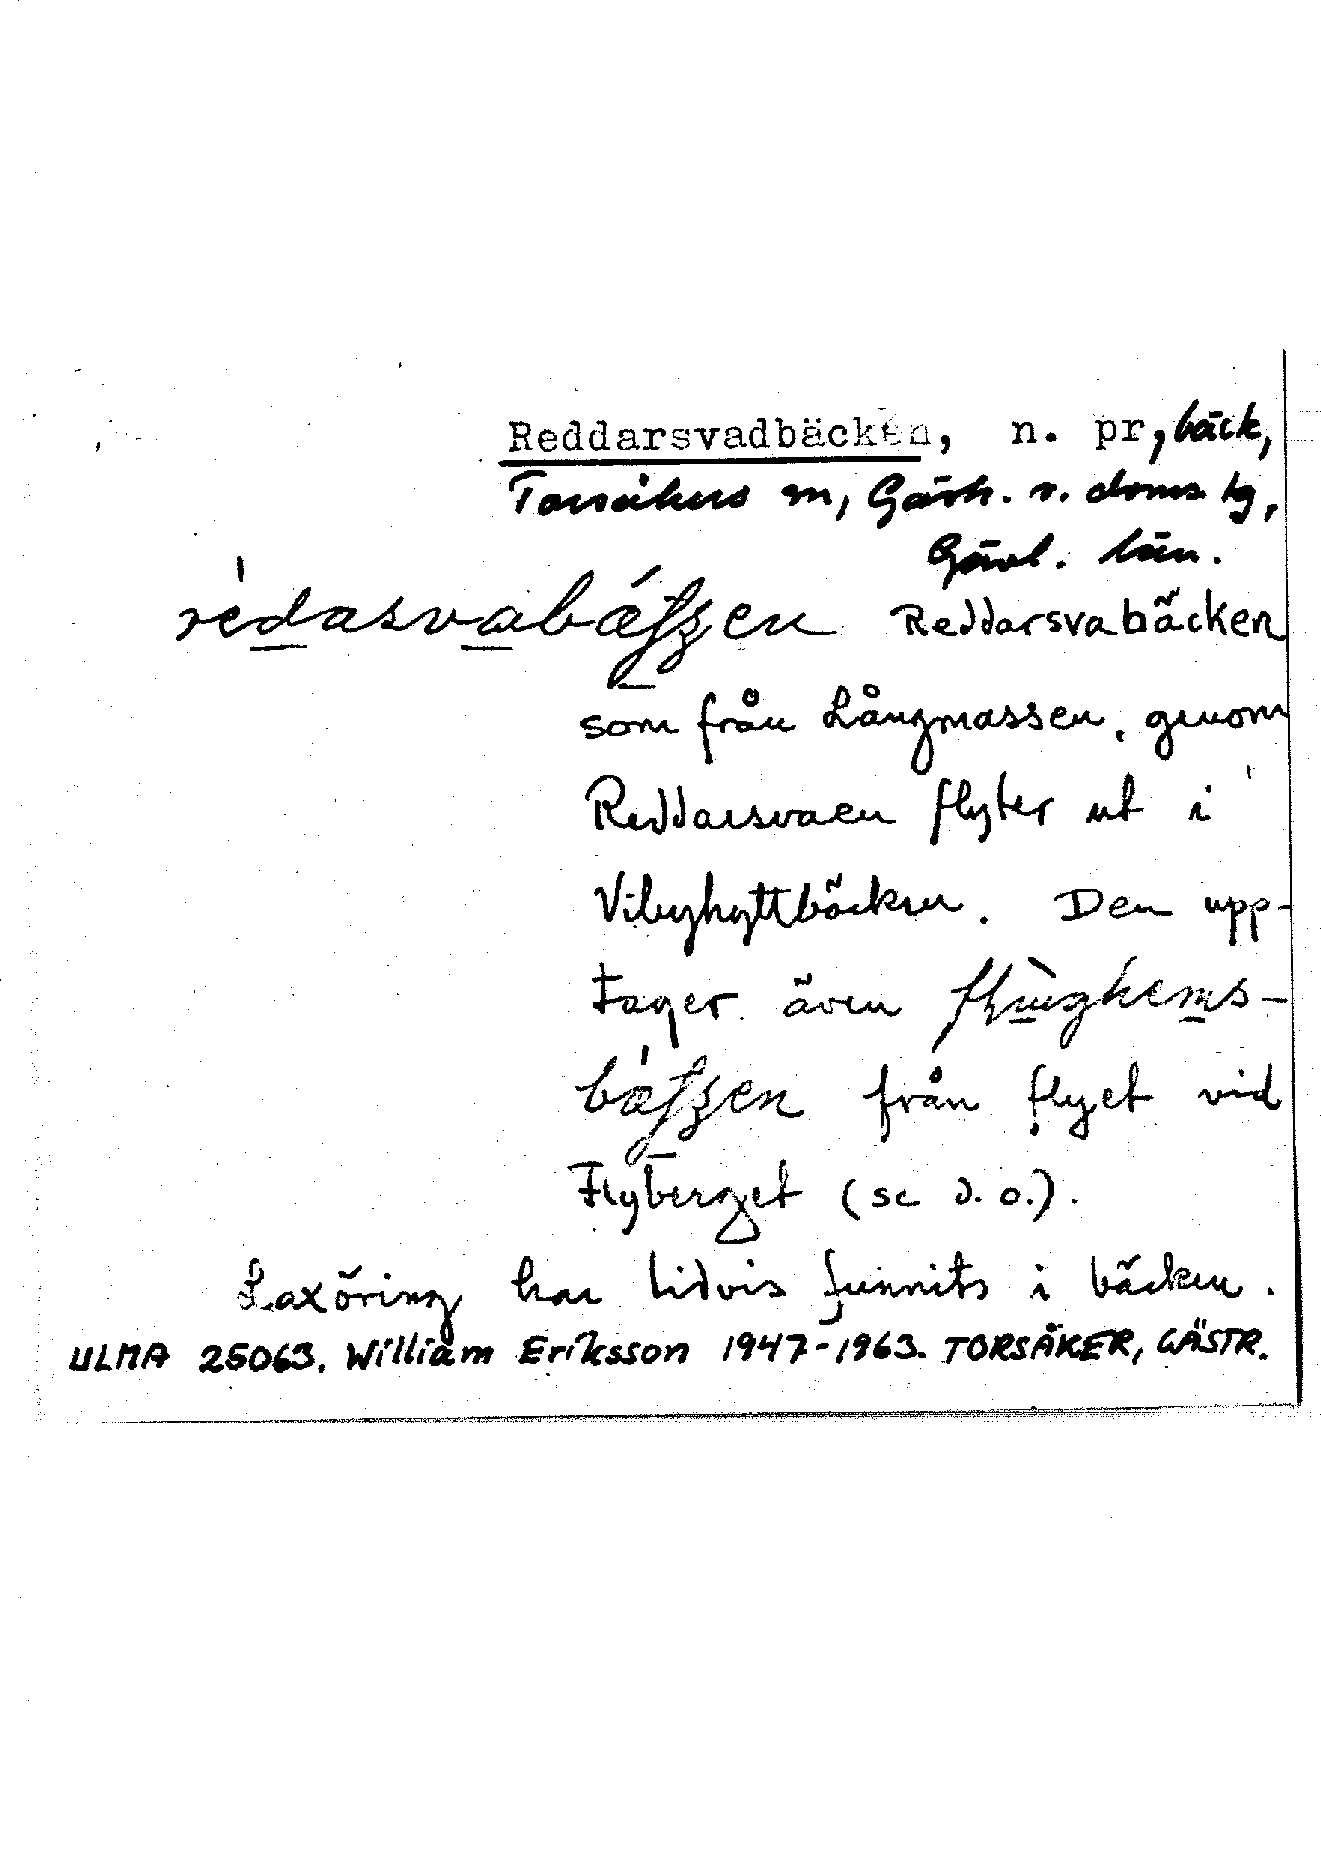 Reddarsvadbäcken, n. pr, bäck,
Torsåkers sn, Gästr. v. doms. tg,
Gävl. län.
Reddarsvabäcken
som från Långmassen, genom
Reddarsvaen flyter ut i
Vibyhyttbäcken. Den upp-
tager även
från flyet vid
Flyberget (se d. o.).
Laxöring har tidvis funnits i bäcken.
ULMA 25063. William Eriksson 1947-1963. TORSÅKER, GÄSTR.